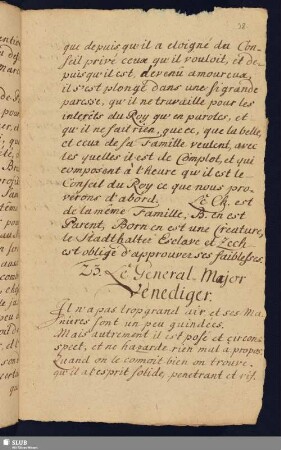 38.
que depuis qu'il a eloigné du Con-
seil privé ceux qu'il vouloit, et de-
puis qu'il est, devenu amoureux,
il s'est plongé dans une si grande
paresse, qu'il ne travaille pour les
interêts du Roy qu'en paroles, et
qu'il ne fait rien, que ce, que la belle,
et ceux de sa Famille veulent, avec
les quelles il est de Complot, et qui
composent à l'heure qu'il est le
Conseil du Roy ce que nous pro-
verons d'abord. Le Ch. est
de la même Famille, B. en est
Parent, Born en est une Creature,
le Stadthalter Esclave et Zech
est obligé d'approuver ses faiblesses.
23. Le General Major
Venediger.
Il n'a pas trop grand air et ses Ma-
nieres sont un peu guindées.
Mais autrement il est posé et circon-
spect, et ne hazarde rien mal a propos.
Quand on le connoit bien on trouve,
qu'il a l'esprit solide, penetrant et vif.
SLUB